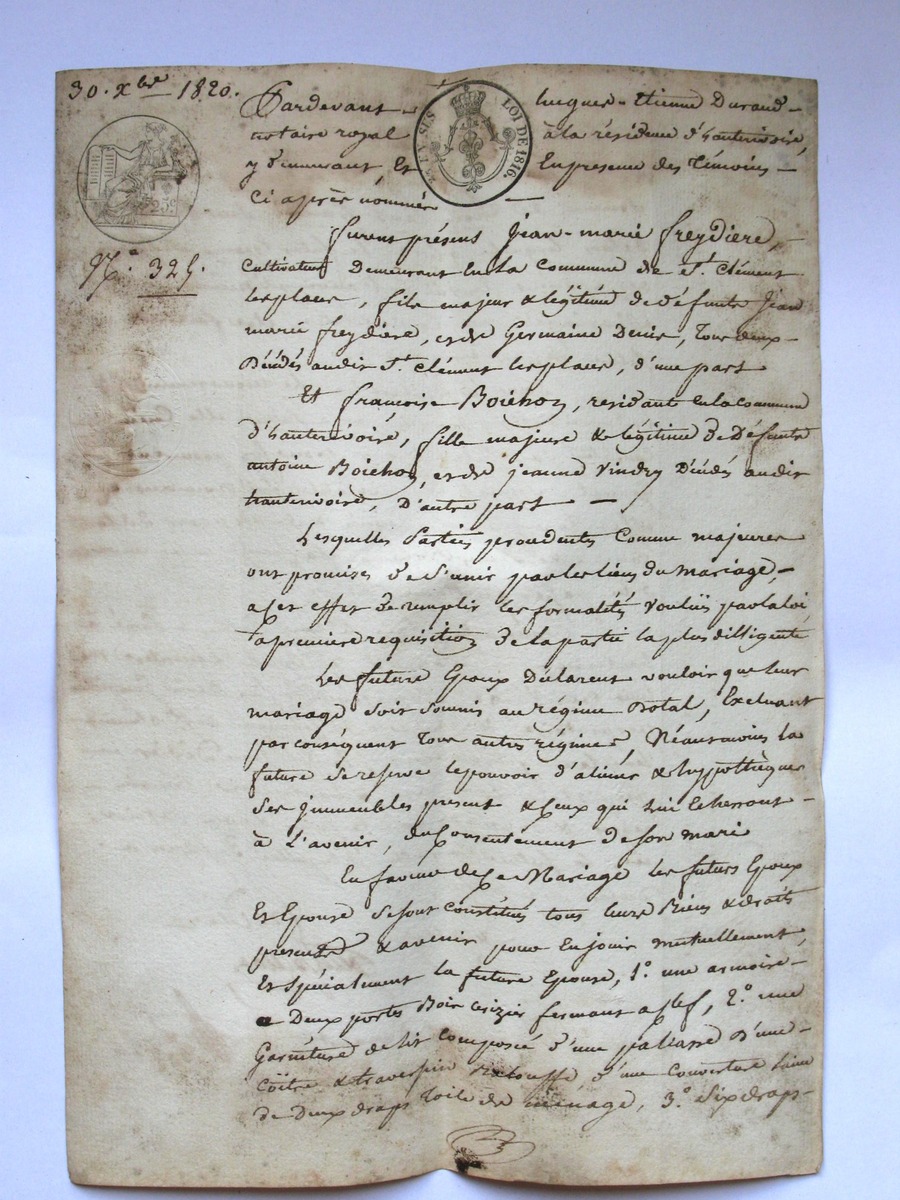 30. Xbre 1820.
Pardevant Jacques-Etienne Durand
LOI DE 1816.
notaire royal à la résidence d'hauterivoire,
y demeurant, Et En presence des Témoins
Ci après nommés
25c
furent présens Jean-marie freydière,
N.° 325.
Cultivateur Demeurant En La Commune de St. Clément
les places, fils majeur & légitime de défunts Jean
marie freydière, et de Germaine Denis, Tous deux
Décédés audit St. Clément les places, d'une part
Et françoise Boiehoz, residant en la commune
d'hauterivoire, fille majeure & légitime de Défunts
antoine Boiehoz, et de jeanne Vindry Décédés audit
hauterivoire, D'autre part
Lesquelles Parties procedantes Comme majeures
ont promises de S'unir par les liens du mariage,
a Cet effet de remplir les formalités Voulües par la loi
a premiere requisition de la partie la plus dilligente
Les future Epoux Déclarent vouloir que leur
mariage soit soumis au régime Dotal, Excluant
par conséquent Tous autres régimes, Néantmoins la
future se reserve le pouvoir d'aliéner & hypothèquer
Ses immeubles present & Ceux qui lui Echerront
à L'avenir, du Consentement de Son mari
En faveur de Ce Mariage les futurs Epoux
Et Epouse Se sont Constitués tous leurs Biens & droits
present & avenir pour En jouir mutuellement,
Et spécialement la future Epouse, 1.° une armoire
a Deux portes Bois Cerizier fermant a Clef, 2.° une
Garniture de lit composée d'une paliasse D'une
Coître & traverpin d'une Couverture laine
de Deux draps Toile de ménage, 3.° Six draps